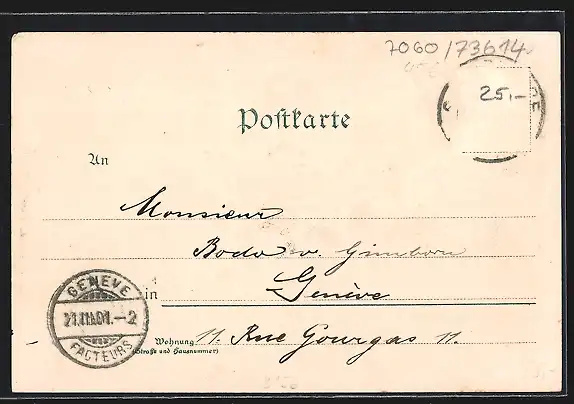 7060/73614
25,-
Postkarte
An
Monsieur
Bodo v. Gimborn
in Genève
Wohnung 11. Rue Gourgas 11.
(Straße und Hausnummer)
GENEVE
21.III.01.-2
FACTEURS